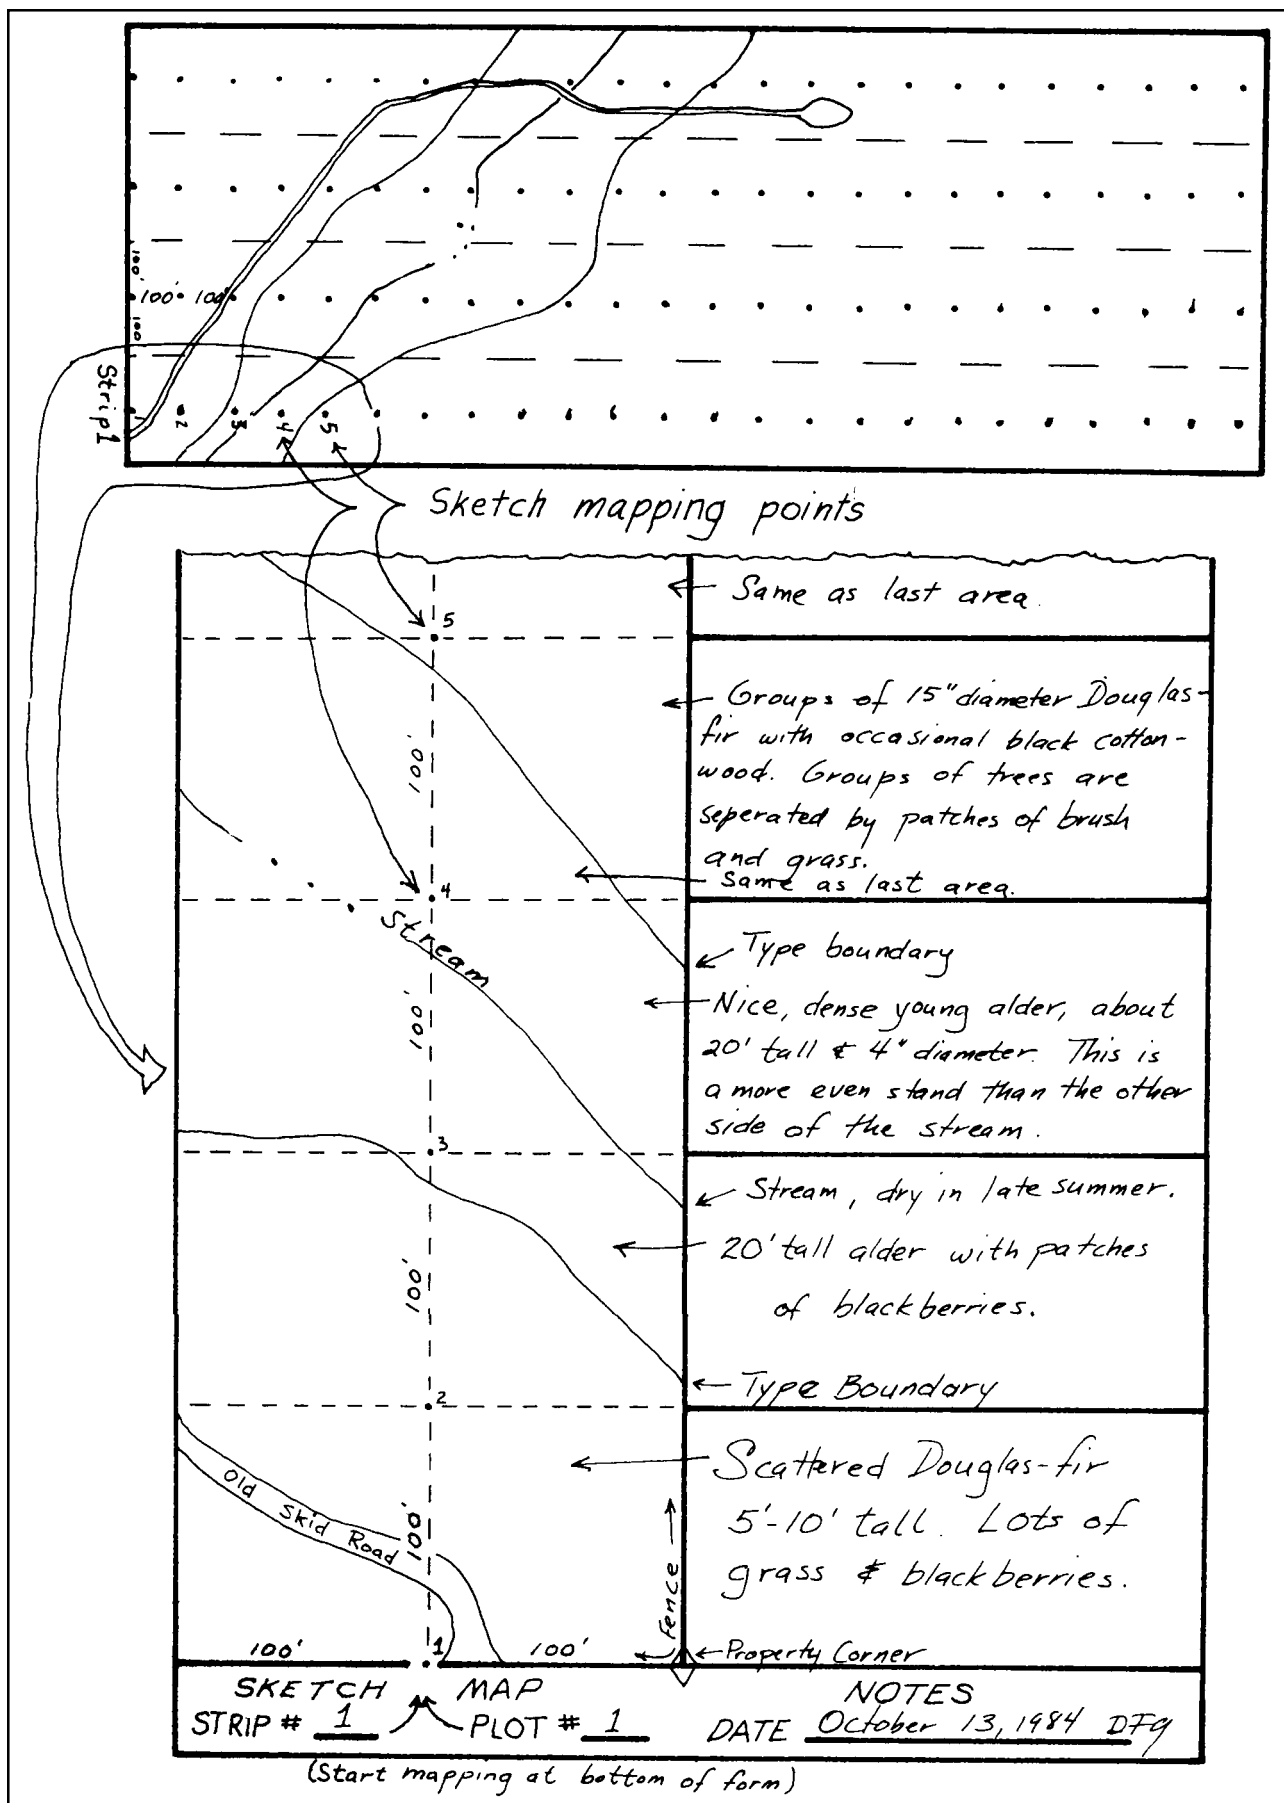 100'
100' 100'
100'
Strip 1
1 2 3 4 5
Sketch mapping points
Same as last area.
5
Groups of 15" diameter Douglas-
fir with occasional black cotton-
wood. Groups of trees are
seperated by patches of brush
and grass.
100'
Same as last area.
4
Stream
Type boundary
Nice, dense young alder, about
20' tall & 4" diameter. This is
a more even stand than the other
side of the stream.
100'
3
Stream, dry in late summer.
20' tall alder with patches
of blackberries.
100'
Type Boundary
2
Scattered Douglas-fir
5'-10' tall. Lots of
grass & blackberries.
Old Skid Road
100'
Fence
100' 1 100'
Property Corner
SKETCH MAP NOTES
STRIP # 1 PLOT # 1 DATE October 13, 1984 DFG
(Start mapping at bottom of form)